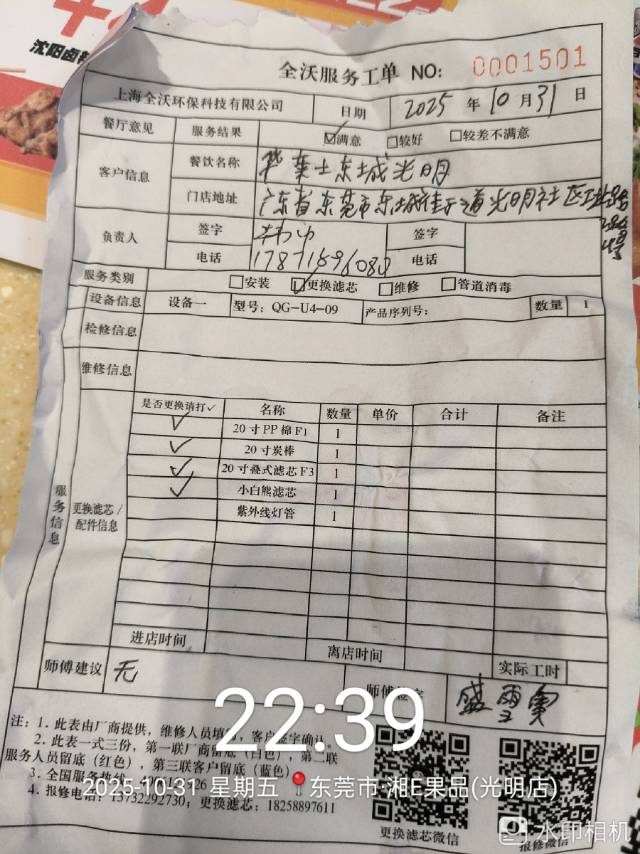 沈阳卤
全沃服务工单 NO: 0001501
上海全沃环保科技有限公司 日期 2025 年 10 月 31 日
餐厅意见 服务结果 ☑满意 □较好 □较差不满意
客户信息 餐饮名称 华莱士东城光明
门店地址 广东省东莞市东城街道光明社区
负责人 签字 签字
电话 电话
服务类别 □安装 ☑更换滤芯 □维修 □管道消毒
设备信息 设备一 型号: QG-U4-09 产品序列号: 数量 1
检修信息
维修信息
服务信息
更换滤芯/配件信息
是否更换请打✓ 名称 数量 单价 合计 备注
✓ 20寸PP棉F1 1
✓ 20寸炭棒 1
✓ 20寸叠式滤芯F3 1
✓ 小白熊滤芯 1
紫外线灯管 1
进店时间 离店时间 实际工时
师傅建议 无 师傅签字
22:39
注: 1. 此表由厂商提供, 维修人员填写, 客户签字确认。
2. 此表一式三份, 第一联厂商留底(白色), 第二联
服务人员留底(红色), 第三联客户留底(蓝色)
3. 全国服务热线
2025-10-31 星期五 东莞市·湘E果品(光明店)
4. 报修电话: 13732292730; 更换滤芯: 18258897611
更换滤芯微信 报修微信
水印相机